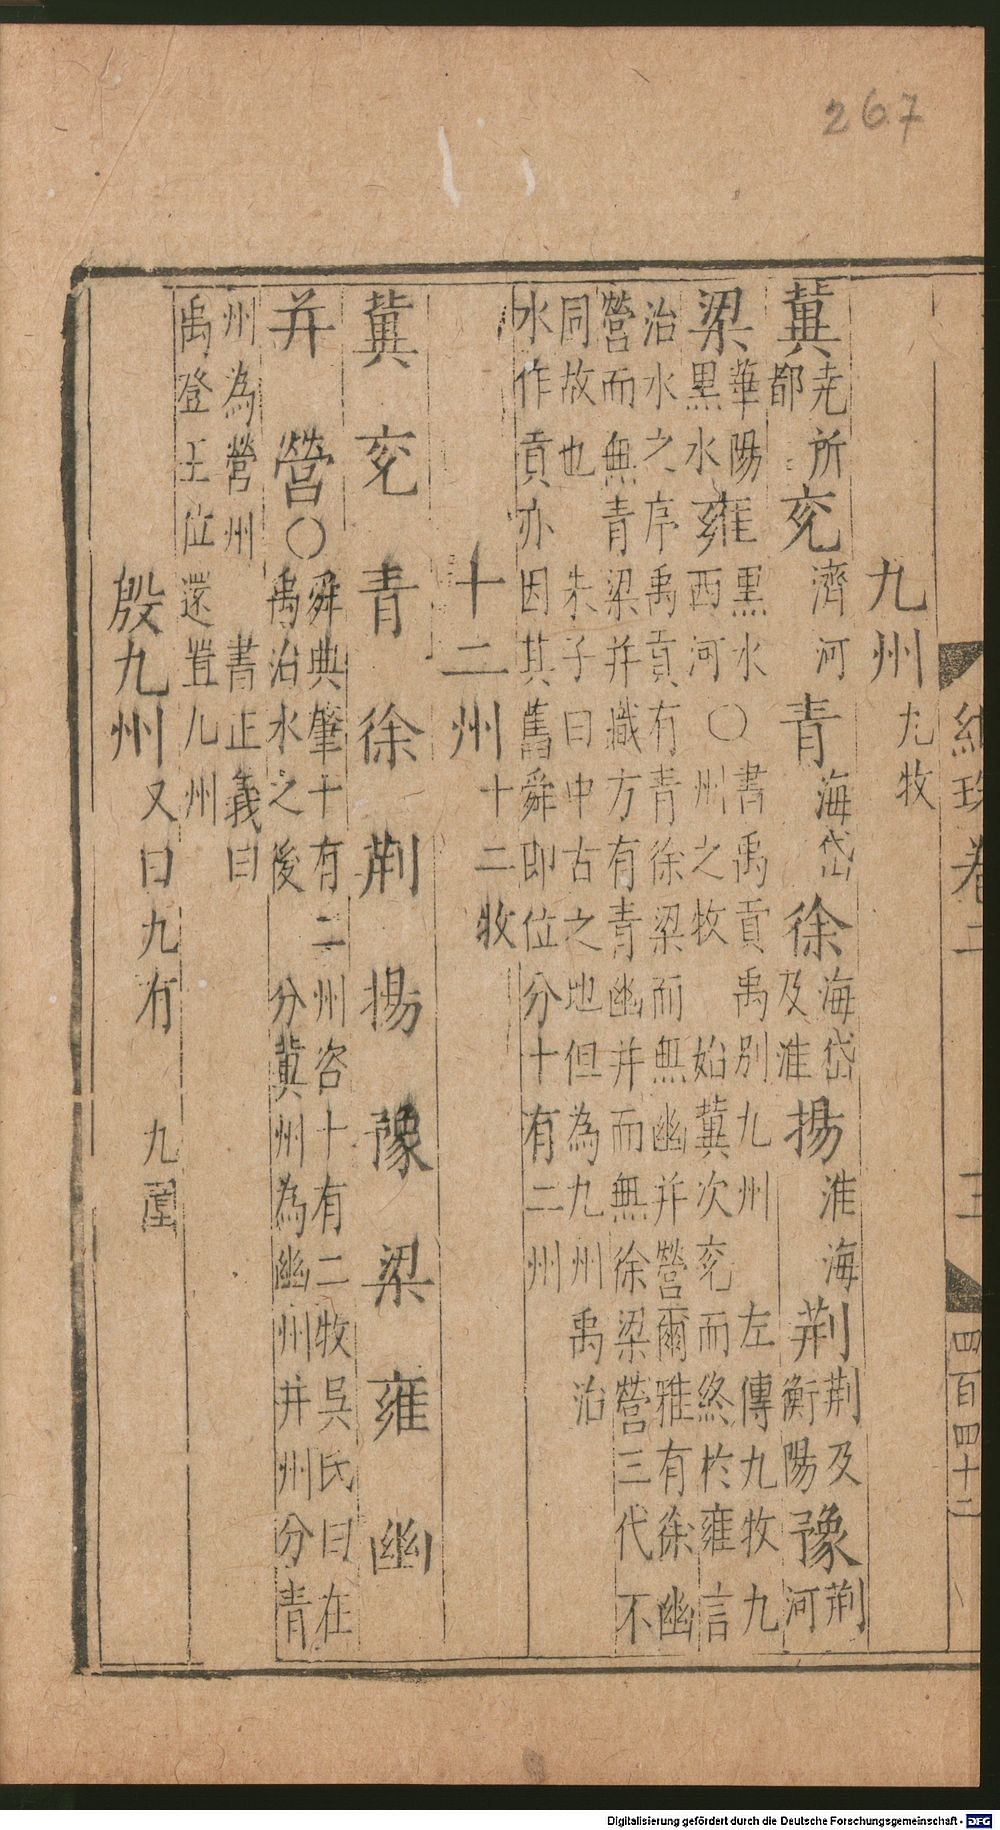 267
九州九牧
冀堯所都兗濟河青海岱徐海岱及淮揚淮海荊荊及衡陽豫荊河
梁華陽黑水雍黑水西河〇書禹貢禹別九州左傳九牧九州之牧始冀次兗而終於雍言
治水之序禹貢有青徐梁而無幽并營爾雅有徐幽
營而無青梁并職方有青幽并而無徐梁營三代不
同故也朱子曰中古之地但為九州禹治
水作貢亦因其舊舜即位分十有二州
十二州十二牧
冀兗青徐荊揚豫梁雍幽
并營〇舜典肇十有二州咨十有二牧吳氏曰在禹治水之後分冀州為幽州并州分青
州為營州書正義曰
禹登王位還置九州
殷九州又曰九有九
卷二
四百四十二
Digitalisierung gefördert durch die Deutsche Forschungsgemeinschaft - DFG